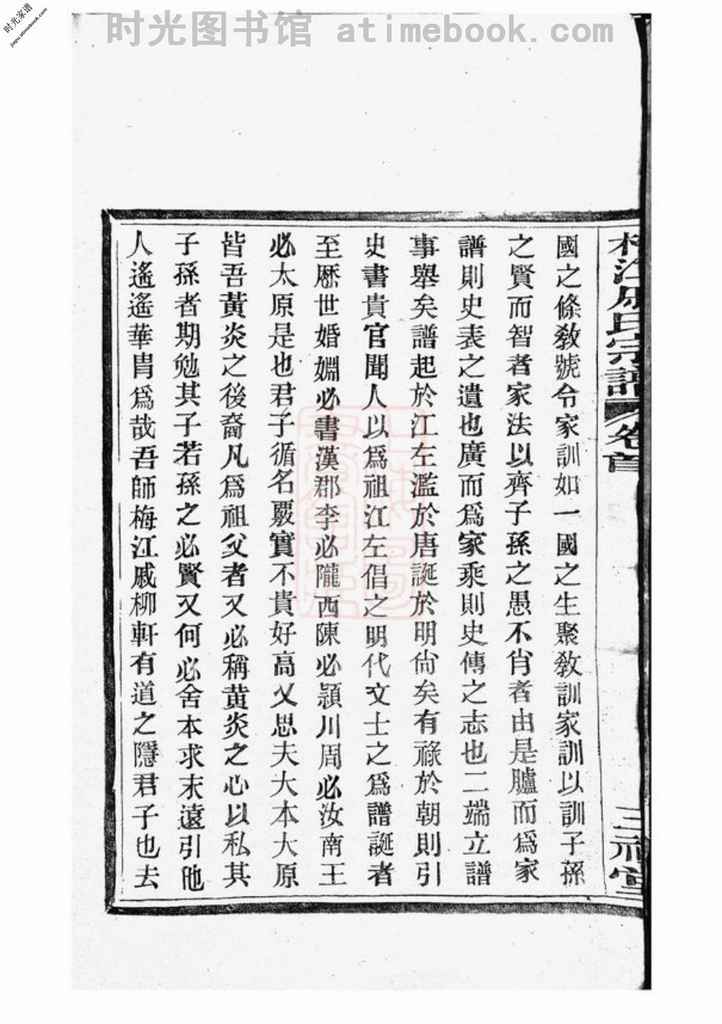 时光图书馆 atimebook.com
时光家谱
jiapu.atimebook.com
梅江戚氏宗譜 卷首 三禮堂
國之條教號令家訓如一國之生聚教訓家訓以訓子孫
之賢而智者家法以齊子孫之愚不肖者由是臚而為家
譜則史表之遺也廣而為家乘則史傳之志也二端立譜
事舉矣譜起於江左濫於唐誕於明尙矣有祿於朝則引
史書貴官聞人以為祖江左倡之明代文士之為譜誕者
至厯世婚姻必書漢郡李必隴西陳必潁川周必汝南王
必太原是也君子循名覈實不貴好高父思夫大本大原
皆吾黃炎之後裔凡為祖父者又必稱黃炎之心以私其
子孫者期勉其子若孫之必賢又何必舍本求末遠引他
人遙遙華胄爲哉吾師梅江戚柳軒有道之隱君子也去